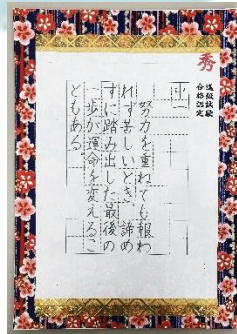 秀
進級試験
合格認定
努力を重ねても報わ
れず苦しいとき、諦め
ずに踏み出した最後の
一歩が運命を変えるこ
ともある。